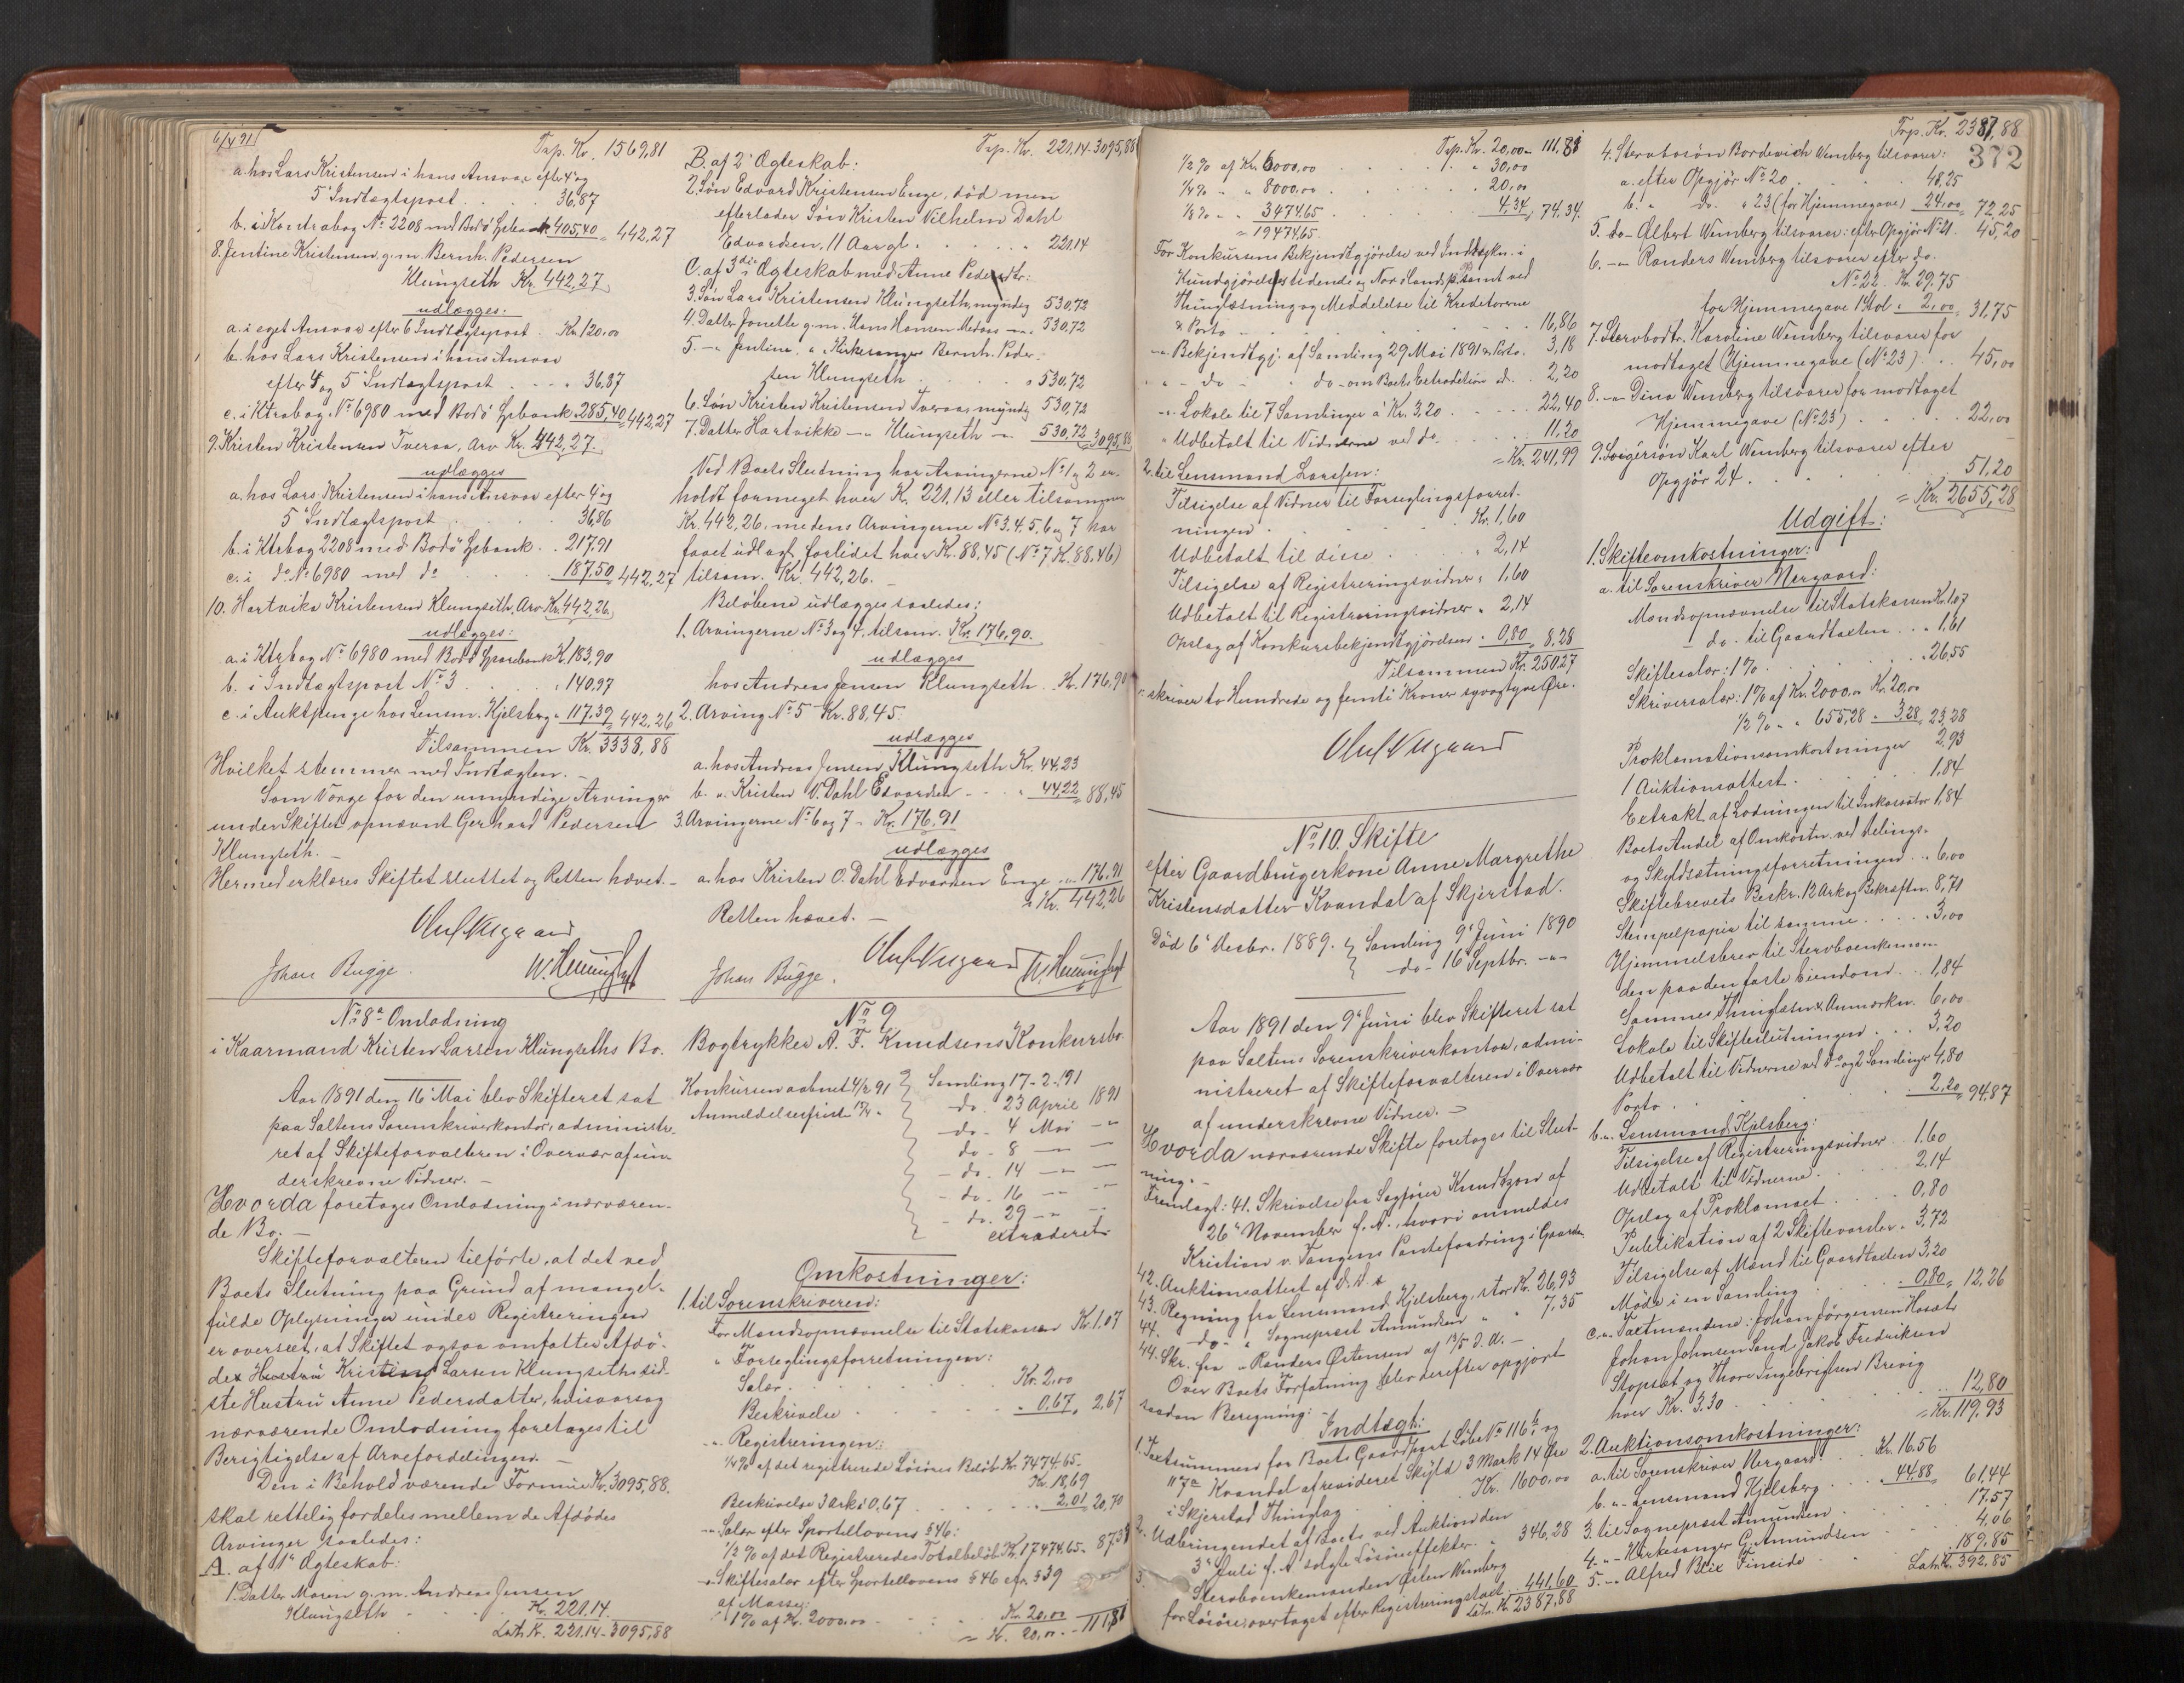 6/4 91
Trp. Kr. 1569,81
a. hos Lars Kristensen i hans Ansvar efter 4 og
5 Indtægtspost . . 36,87
b. i Kontrabog No 2208 med Bodö Spbank 405,40 = 442,27
8. Jentine Kristensen g. m. Bernh. Pedersen
Klungseth Kr. 442,27
udlægges:
a. i eget Ansvar efter 6 Indtægtspost . Kr. 120,00
b. hos Lars Kristensen i hans Ansvar
efter 4 og 5 Indtægtspost . . . 36,87
c. i Ktrabog No 6980 med Bodö Spbank 285,40 = 442,27
9. Kristen Kristensen Tveraa, Arv Kr. 442,27.
udlægges
a. hos Lars Kristensen i hans Ansvar efter 4 og
5 Indtægtspost . . 36,86
b. i Ktrbog 2208 med Bodö Spbank . . 217,91
c. i do No 6980 med do . . 187,50 442,27
10. Hartvika Kristensen Klungseth, Arv Kr. 442,26
udlægges:
a. i Ktrbog No 6980 med Bodö Sparebank Kr. 183,90
b. i Indtægtspost No 3 . . . 140,97
c. i Auktspenge hos Lensm. Kjelsberg " 117,39 442,26
Tilsammen Kr. 3338,88
Hvilket stemmer med Indtægten. —
Som Værge for den umyndige Arvinger
under Skiftet opnævnt Gerhard Pedersen
Klungseth. —
Hermed erklæres Skiftet sluttet og Retten hævet. —
Johan Bugge.
No 8a Omlodning
i Kaarmand Kristen Larsen Klungseths Bo.
Aar 1891 den 16 Mai blev Skifteret sat
paa Saltens Sorenskriverkontor, administre-
ret af Skifteforvalteren i Overvær af un-
derskrevne Vidner. —
Hvorda foretages Omlodning i nærværen-
de Bo. —
Skifteforvalteren tilförte, at det ved
Boets Slutning paa Grund af mangel-
fulde Oplysninger under Registreringen
er overseet, at Skiftet ogsaa omfatter Afdö-
des Hustru Kristen Larsen Klungseths sid-
ste Hustru Anne Pedersdatter, hvisaarsag
nærværende Omlodning foretages til
Berigtigelse af Arvefordelingen. —
Den i Behold værende Formue Kr. 3095,88.
skal rettelig fordeles mellem de Afdødes
Arvinger saaledes:
A. af 1e Ægteskab:
1. Datter Maren g. m. Andreas Jensen
Klungseth . . Kr. 221.14
Lats Kr. 221.14 - 3095,88
Trp. Kr. 221.14 - 3095,88
B. af 2 Ægteskab:
2. Søn Edvard Kristensen Enge, död men
efterlader Søn Kristen Vilhelm Dahl
Edvardsen, 11 Aar gl. . . . 221.14
C. af 3die Ægteskab med Anne Pedersdtr:
3. Søn Lars Kristensen Klungseth, myndig 530,72
4. Datter Jonette g. m. Hans Hansen Medaas — " 530,72
5. — " Jentine " Kirkesanger Bernh. Peder-
sen Klungseth . . . " 530,72
6. Søn Kristen Kristensen Tveraa, myndig 530,72
7. Datter Hartvikke — " Klungseth — " 530,72 3095,88
Ved Boets Slutning har Arvingerne No 1 og 2 er-
holdt formeget hver Kr. 221,13 eller tilsammen
Kr. 442,26, medens Arvingerne No 3. 4. 5. 6 og 7 har
faaet udlagt forlidet hver Kr. 88.45 (No 7 Kr. 88.46)
tilsam. Kr. 442,26. —
Beløbene udlægges saaledes:
1. Arvingerne No 3 og 4, tilsam. Kr. 176,90.
udlægges
hos Andreas Jensen Klungseth . Kr. 176,90
2. Arving No 5 Kr. 88,45.
udlægges
a. hos Andreas Jensen Klungseth Kr. 44,23
b. " Kristen V. Dahl Edvardsen . . . " 44,22 = 88,45
3. Arvingerne No 6 og 7 - Kr. 176,91
udlægges
a. hos Kristen V. Dahl Edvardsen Enge . . " 176,91
= Kr. 442,26
Retten hævet. —
Johan Bugge.
No 9
Bogtrykker A. F. Knudsens Konkursbo.
Konkursen aabnet 4/2 91
Anmeldelsesfrist 17/4 "
Samling 17 - 2. 91
do. 23 April 1891
do - 4 Mai — "
do - 8 — " —
do. 14 — " —
do. 16 — " —
do. 29 — " —
extraderet.
Omkostninger:
1. til Sorenskriveren:
For Mandsopnævnelse til Statskassen Kr. 1.07
" Forseglingsforretningen:
Salær . . . Kr. 2,00
Beskrivelse . . . " 0,67, 2,67
— " Registreringen:
1/4 % af det registrerede Løsøres Beløb Kr. 7474.65-
Kr. 18,69
Beskrivelse 3 ark à 0,67 . . . 2,01 20,70
— " Salær efter Sportellovens § 46:
1/2 % af det Registreredes Totalbeløb Kr. 17474.65 - 87,38
— " Skiftesalær efter Sportellovens § 46 cfr. § 39
af Masse:
1 % af Kr. 2000.00 . . . Kr. 20,00
= Kr. 20,00 - 111,81
Trp. Kr. 20,00 - 111.81
1/2 % af Kr. 6000,00 . . . " 30,00
1/4 % " " 8000,00 . . . 20,00
1/8 % " " 3474.65 . . . 4,34 74,34
= 19474.65.
For Konkursens Bekjendtgjörelse ved Indrykn. i
Kundgjörelsestidende og Nordlandsp. samt ved
Thinglæsning og Meddelelse til Kreditorerne
& Porto . . . 16,86
— " Bekjendtgj. af Samling 29 Mai 1891 & Porto. 3,18
" - do - " do - om Boets Extradition do. . 2,20
— " Lokale til 7 Samlinger à Kr. 3.20 . . . 22,40
" Udbetalt til Vidnerne ved do. . . . 11,20
= Kr. 241,99
2. til Lensmand Larssen:
Tilsigelse af Vidner til Forseglingsforret-
ningen . . . Kr. 1,60
Udbetalt til disse . . . " 2,14
Tilsigelse af Registreringsvidner " 1,60
Udbetalt til Registreringsvidner " 2,14
Opslag af Konkursbekjendtgjörelsen " 0,80, 8,28
Tilsammen Kr. 250,27
skriver to Hundrede og femti Kroner syvogtyve Øre.
No 10. Skifte
efter Gaardbrugerkone Anne Margrethe
Kristensdatter Kvandal af Skjerstad.
Död 6 Decbr. 1889.
Samling 9 Juni 1890
do - 16 Septbr. — " —
Aar 1891 den 9 Juni blev Skifteret sat
paa Saltens Sorenskriverkontor, admi-
nistreret af Skifteforvalteren i Overvær
af underskrevne Vidner. —
Hvorda nærværende Skifte foretages til Slut-
ning. —
Fremlagt: 41. Skrivelse fra Sagfører Knudtzon af
26 November f. A., hvori anmeldes
Kristian v. Tangens Pantefordring i Gaarden
42. Auktionsattest af d. D.
43. Regning fra Lensmand Kjelsberg, stor Kr. 26,93
44. - do - " Sognepræst Amundsen " 7,35
44. Skr. fra " Randers Østensen af 13/5 d. A. —
Over Boets Forfatning blev derefter opgjort
saadan Beregning: —
Indtægt:
1. Taxtsummen for Boets Gaardpart Løbe No 116 b og
117a Kvandal af revideret Skyld 3 Mark 14 Øre
i Skjerstad Thinglag . . . Kr. 1600.00
2. Udbringendet af Boets ved Auktion den
3 Juli f. A. solgte Løsøreeffekter . . " 346,28
3. Stervboenkemanden Østen Wenberg
for Løsøre overtaget efter Registreringstaxt . 441,60
Lats. Kr. 2387,88
Trp. Kr. 2387,88
372
4. Stervbosøn Bordevich Wenberg tilsvarer:
a. efter Opgjör No 20 . . . 48,25
b. " do. " 23 (for Hjemmegave) 24.00, 72,25
5. do - Albert Wenberg tilsvarer: efter Opgjör No 21. 45,20
6. — " Randers Wenberg tilsvarer efter do.
No 22. Kr. 29.75
for Hjemmegave 1 Stol " 2,00, 31,75
7. Stervbodtr. Karoline Wenberg tilsvarer for
modtaget Hjemmegave (No 23) . . 45,00
8. — " Dina Wenberg tilsvarer for modtaget
Hjemmegave (No 23) . . . 22,00
9. Svigersøn Karl Wenberg tilsvarer efter
Opgjör 24 . . . 51,20
= Kr. 2655,28
Udgift:
1. Skifteomkostninger:
a. til Sorenskriver Nergaard:
Mandsopnævnelse til Statskassen Kr. 1.07
- do. til Gaardtaxten . . " 1,61
Skiftesalær: 1 % . . . 26,55
Skriversalær: 1 % af Kr. 2000.00 Kr. 20.00
1/2 % - " 655,28 " 3,28, 23,28
Proklamationsomkostninger 2,93
1 Auktionsattest . . . 1,84
Extrakt af Lodningen til Inkassator 1,84
Boets Andel af Omkostn. ved Delings-
og Skyldsætningsforretningen . . 6,00
Skiftebrevets Beskr. 12 Ark og Bekræftn. 8,71
Stempelpapir til samme . . . 3,00
Hjemmelsbrev til Stervboenkeman-
den paa den faste Eiendom . . 1,84
Sammes Thinglæsn. & Anmærkn. 6,00
Lokale til Skifteslutningen . . 3,20
Udbetalt til Vidnerne ved do og 2 Samlinger 4,80
Porto . . . 2,20 = 94,87
b. " Lensmand Kjelsberg:
Tilsigelse af Registreringsvidner . 1.60
Udbetalt til Vidnerne . . . 2,14
Opslag af Proklamaet . . . 0,80
Publikation af 2 Skiftevarsler " 3,72
Tilsigelse af Mænd til Gaardtaxten 3,20
Møde i en Samling . . . 0,80, 12,26
c. " Taxtmændene: Johan Jörgensen
Johan Johnsen Sand Jakob Fredriksen
og Thore Ingebrigtsen Breivig
hver Kr. 3.30 . . . 12,80
= Kr. 119,93
2. Auktionsomkostninger:
a. til Sorenskriver Nergaard: Kr. 16.56
b. " Lensmand Kjelsberg . . . 44,88 61.44
3. til Sognepræst Amundsen . . . 17.57
4. " - Kirkesanger G. Amundsen . . . 4,06
5. — " Alfred Blix Finseide . . . 189.85
Lats. Kr. 392,85